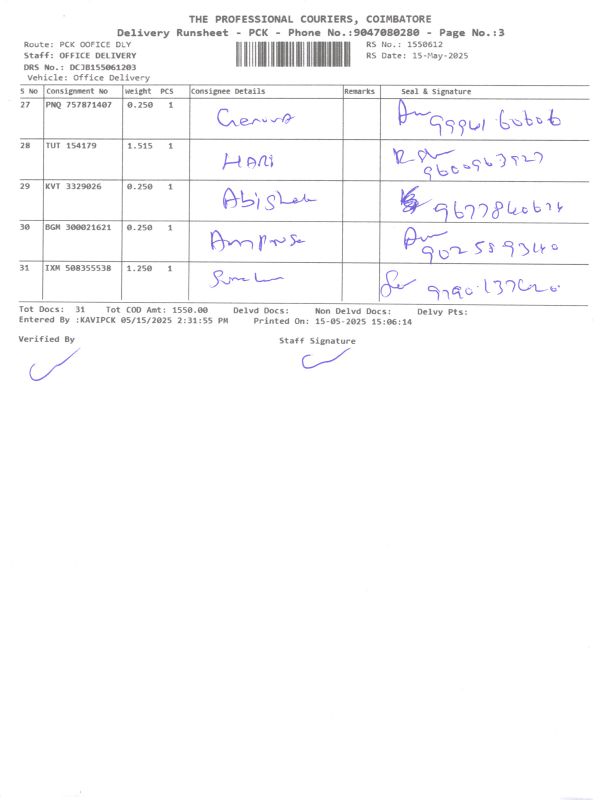 THE PROFESSIONAL COURIERS, COIMBATORE
Delivery Runsheet - PCK - Phone No.:9047080280 - Page No.:3
Route: PCK OOFICE DLY RS No.: 1550612
Staff: OFFICE DELIVERY RS Date: 15-May-2025
DRS No.: DCJB155061203
Vehicle: Office Delivery
S No Consignment No Weight PCS Consignee Details Remarks Seal & Signature
27 PNQ 757871407 0.250 1
28 TUT 154179 1.515 1 HARI
29 KVT 3329026 0.250 1 Abishek
30 BGM 300021621 0.250 1
31 IXM 508355538 1.250 1
Tot Docs: 31 Tot COD Amt: 1550.00 Delvd Docs: Non Delvd Docs: Delvy Pts:
Entered By :KAVIPCK 05/15/2025 2:31:55 PM Printed On: 15-05-2025 15:06:14
Verified By Staff Signature